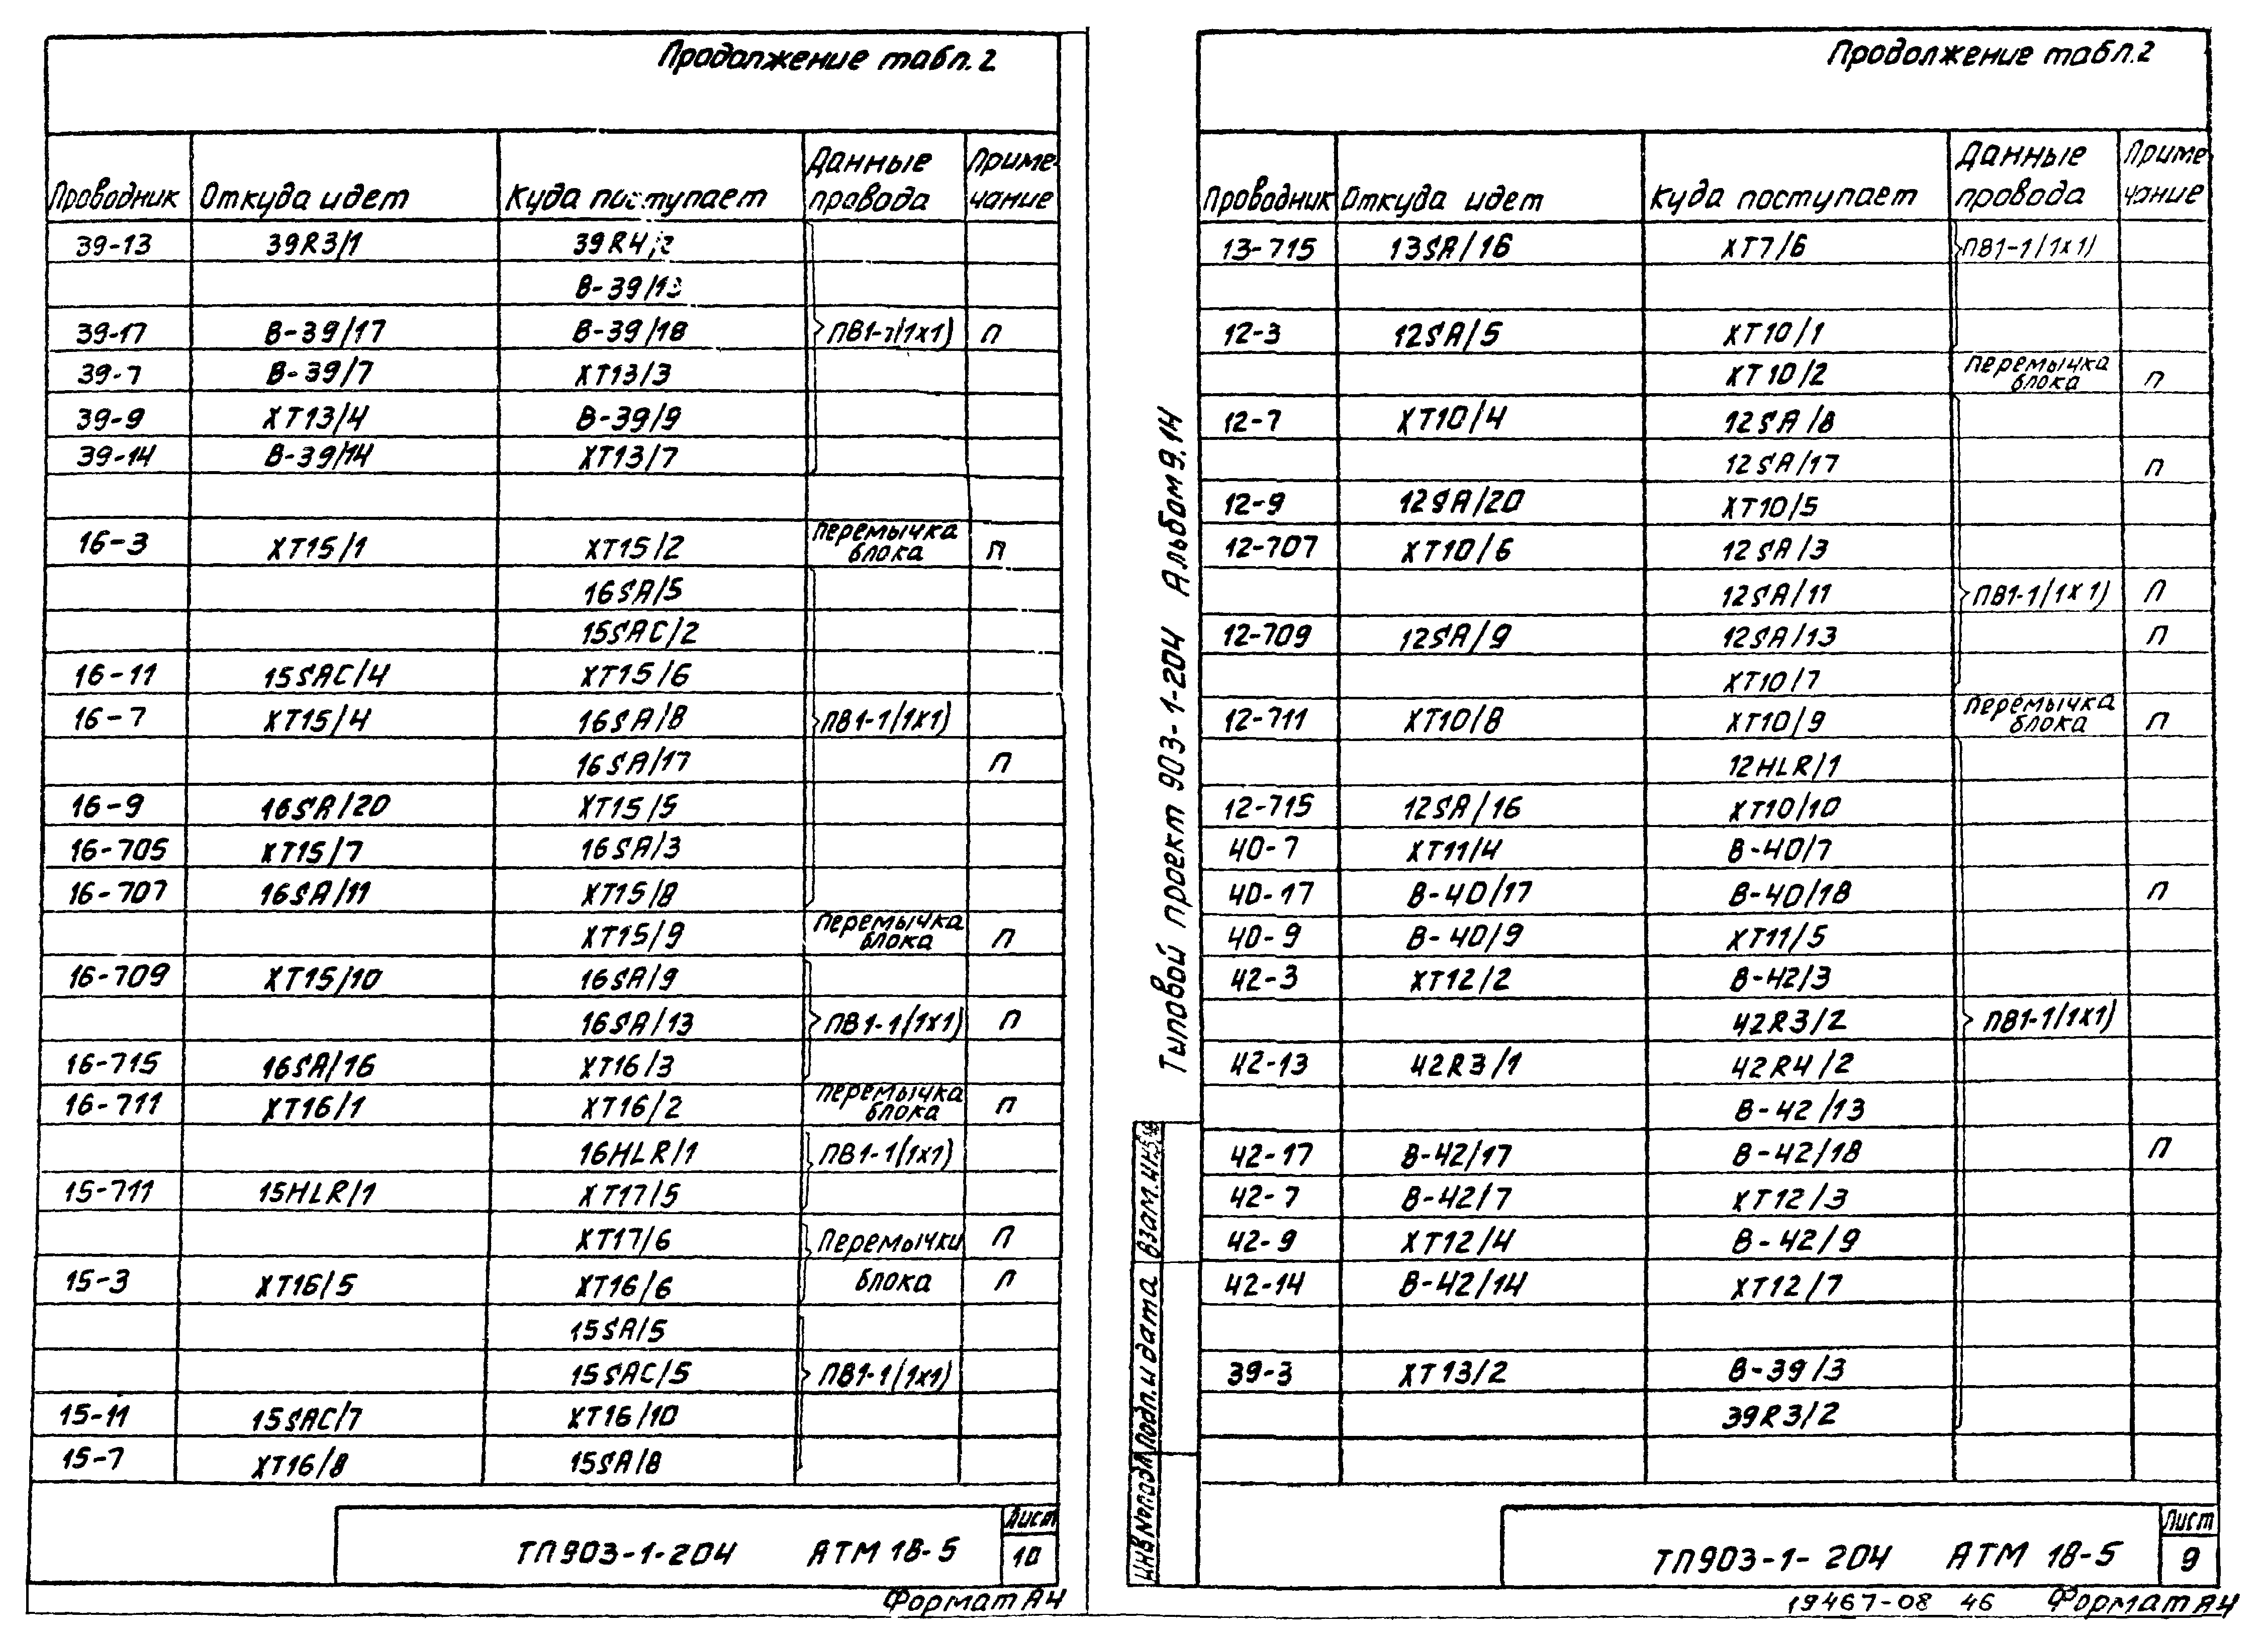 Продолжение табл.2
Проводник Откуда идет Куда поступает Данные провода Приме-чание
39-13 39R3/1 39R4/2
В-39/13
39-17 В-39/17 В-39/18 ПВ1-1(1х1) П
39-7 В-39/7 ХТ13/3
39-9 ХТ13/4 В-39/9
39-14 В-39/14 ХТ13/7
16-3 ХТ15/1 ХТ15/2 Перемычка блока П
16SA/5
15SAC/2
16-11 15SAC/4 ХТ15/6
16-7 ХТ15/4 16SA/8 ПВ1-1(1х1)
16SA/17 П
16-9 16SA/20 ХТ15/5
16-705 ХТ15/7 16SA/3
16-707 16SA/11 ХТ15/8
ХТ15/9 Перемычка блока П
16-709 ХТ15/10 16SA/9
16SA/13 ПВ1-1(1х1) П
16-715 16SA/16 ХТ16/3
16-711 ХТ16/1 ХТ16/2 Перемычка блока П
16HLR/1 ПВ1-1(1х1)
15-711 15HLR/1 ХТ17/5
ХТ17/6 Перемычки П
15-3 ХТ16/5 ХТ16/6 блока П
15SA/5
15SAC/5 ПВ1-1(1х1)
15-11 15SAC/7 ХТ16/10
15-7 ХТ16/8 15SA/8
ТП903-1-204 АТМ 18-5 Лист 10
Формат А4
Продолжение табл.2
Проводник Откуда идет Куда поступает Данные провода Приме-чание
13-715 13SA/16 ХТ7/6 ПВ1-1(1х1)
12-3 12SA/5 ХТ10/1
ХТ10/2 Перемычка блока П
12-7 ХТ10/4 12SA/8
12SA/17 П
12-9 12SA/20 ХТ10/5
12-707 ХТ10/6 12SA/3
12SA/11 ПВ1-1(1х1) П
12-709 12SA/9 12SA/13 П
ХТ10/7
12-711 ХТ10/8 ХТ10/9 Перемычка блока П
12HLR/1
12-715 12SA/16 ХТ10/10
40-7 ХТ11/4 В-40/7
40-17 В-40/17 В-40/18 П
40-9 В-40/9 ХТ11/5
42-3 ХТ12/2 В-42/3
42R3/2 ПВ1-1(1х1)
42-13 42R3/1 42R4/2
В-42/13
42-17 В-42/17 В-42/18 П
42-7 В-42/7 ХТ12/3
42-9 ХТ12/4 В-42/9
42-14 В-42/14 ХТ12/7
39-3 ХТ13/2 В-39/3
39R3/2
Типовой проект 903-1-204 Альбом 9.14
Инв №подл. Подп. и дата Взам. инв.№
ТП903-1-204 АТМ 18-5 Лист 9
19467-08 46 Формат А4